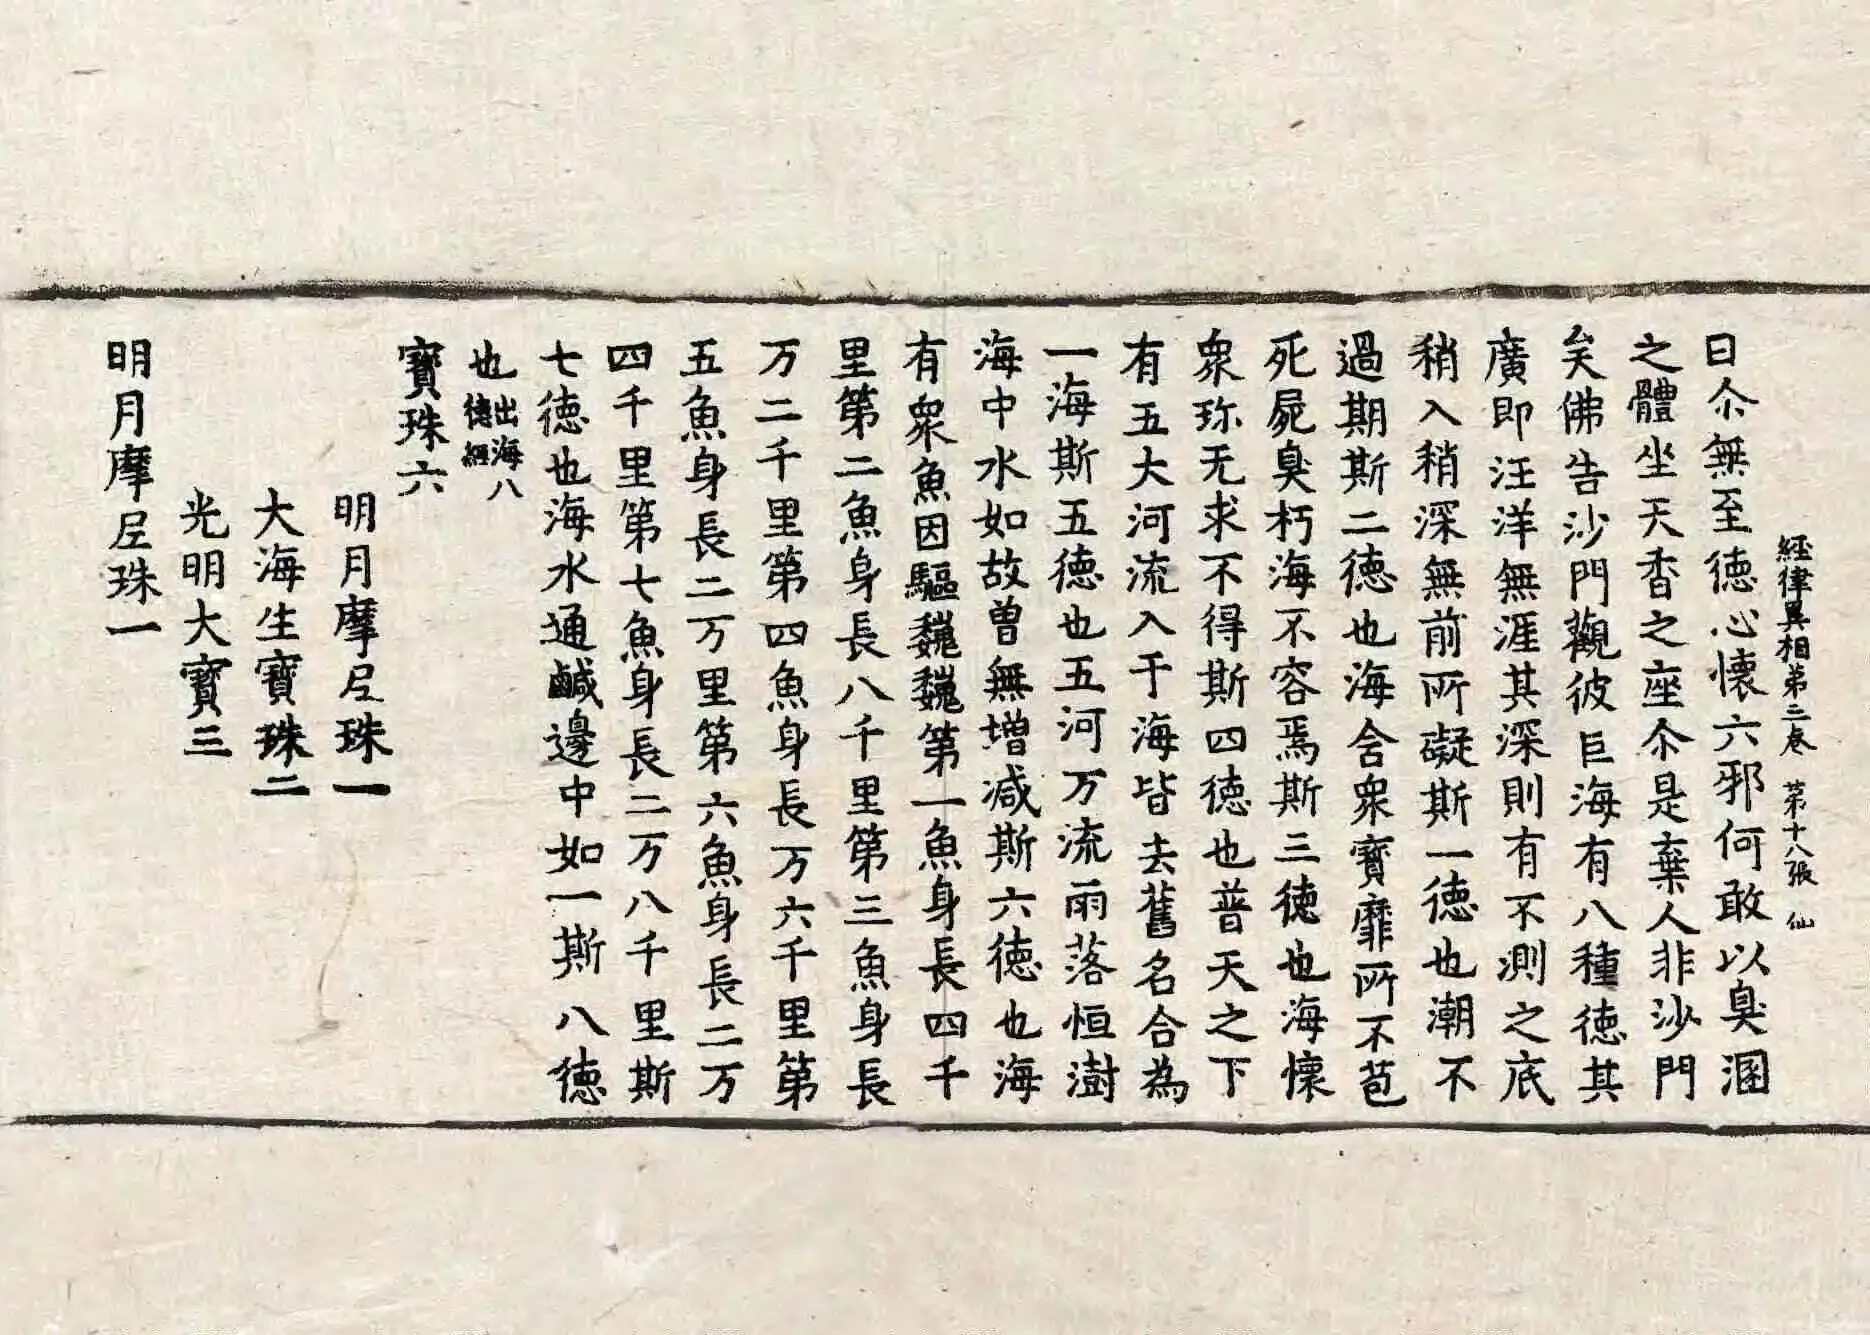 經律異相第三卷 第十八張 仙
曰尒無至徳心懷六邪何敢以臭溷
之體坐天香之座尒是棄人非沙門
矣佛告沙門觀彼巨海有八種徳其
廣即汪洋無涯其深則有不測之底
稍入稍深無前所礙斯一徳也潮不
過期斯二徳也海含衆寶靡所不苞
死屍臭朽海不容焉斯三徳也海懷
衆珎无求不得斯四徳也普天之下
有五大河流入于海皆去舊名合為
一海斯五徳也五河万流雨落恒澍
海中水如故曽無増減斯六徳也海
有衆魚因驅巍巍第一魚身長四千
里第二魚身長八千里第三魚身長
万二千里第四魚身長万六千里第
五魚身長二万里第六魚身長二万
四千里第七魚身長二万八千里斯
七徳也海水通鹹邊中如一斯八徳
也出海八徳經
寶珠六
明月摩尼珠一
大海生寶珠二
光明大寶三
明月摩尼珠一